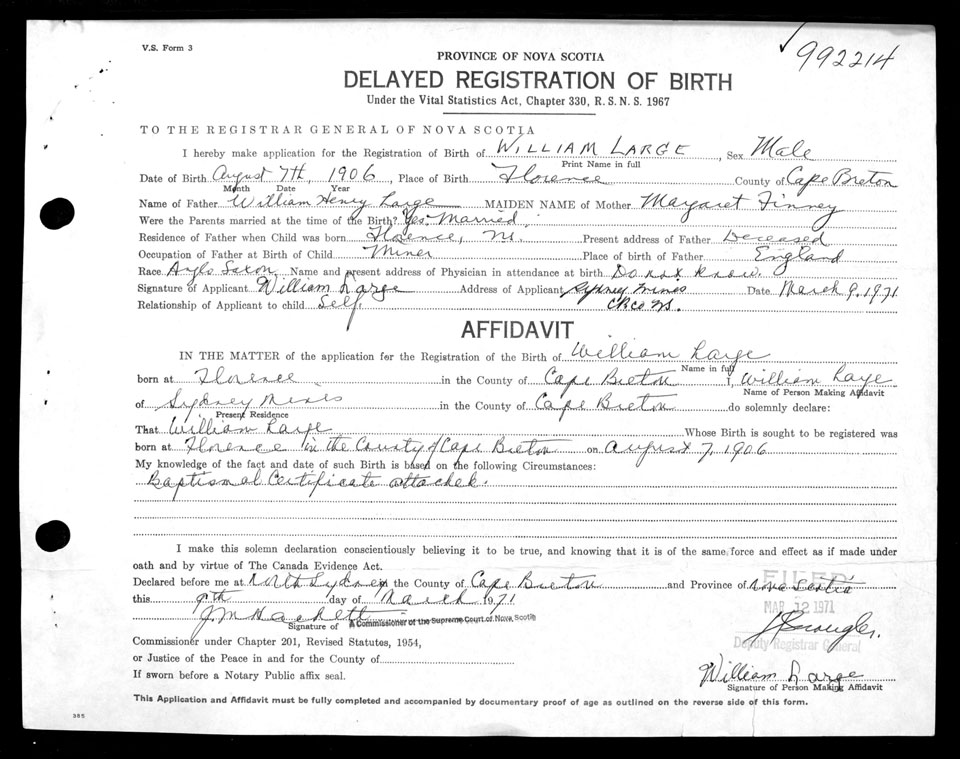 V.S. Form 3
992214
PROVINCE OF NOVA SCOTIA
DELAYED REGISTRATION OF BIRTH
Under the Vital Statistics Act, Chapter 330, R.S.N.S. 1967
TO THE REGISTRAR GENERAL OF NOVA SCOTIA
I hereby make application for the Registration of Birth of WILLIAM LARGE, Sex Male
Print Name in full
Date of Birth August 7th, 1906, Place of Birth Florence County of Cape Breton
Month Date Year
Name of Father William Henry Large MAIDEN NAME of Mother Margaret Finney
Were the Parents married at the time of the Birth? Yes. Married.
Residence of Father when Child was born Florence, Present address of Father Deceased
Occupation of Father at Birth of Child Miner Place of birth of Father England
Race Anglo Saxon Name and present address of Physician in attendance at birth Do not know.
Signature of Applicant William Large Address of Applicant Sydney Mines Date March 9, 1971
Relationship of Applicant to child Self.
AFFIDAVIT
IN THE MATTER of the application for the Registration of the Birth of William Large
Name in full
born at Florence in the County of Cape Breton I, William Large
Name of Person Making Affidavit
of Sydney Mines in the County of Cape Breton do solemnly declare:
Present Residence
That William Large Whose Birth is sought to be registered was
born at Florence in the County of Cape Breton on August 7, 1906
My knowledge of the fact and date of such Birth is based on the following Circumstances:
Baptismal Certificate attached.
I make this solemn declaration conscientiously believing it to be true, and knowing that it is of the same force and effect as if made under
oath and by virtue of The Canada Evidence Act.
Declared before me at North Sydney in the County of Cape Breton and Province of Nova Scotia
FILED
this 9th day of March 1971
MAR 12 1971
J M Hackett
Signature of A Commissioner of the Supreme Court of Nova Scotia
Deputy Registrar General
Commissioner under Chapter 201, Revised Statutes, 1954,
or Justice of the Peace in and for the County of
William Large
If sworn before a Notary Public affix seal.
Signature of Person Making Affidavit
This Application and Affidavit must be fully completed and accompanied by documentary proof of age as outlined on the reverse side of this form.
385